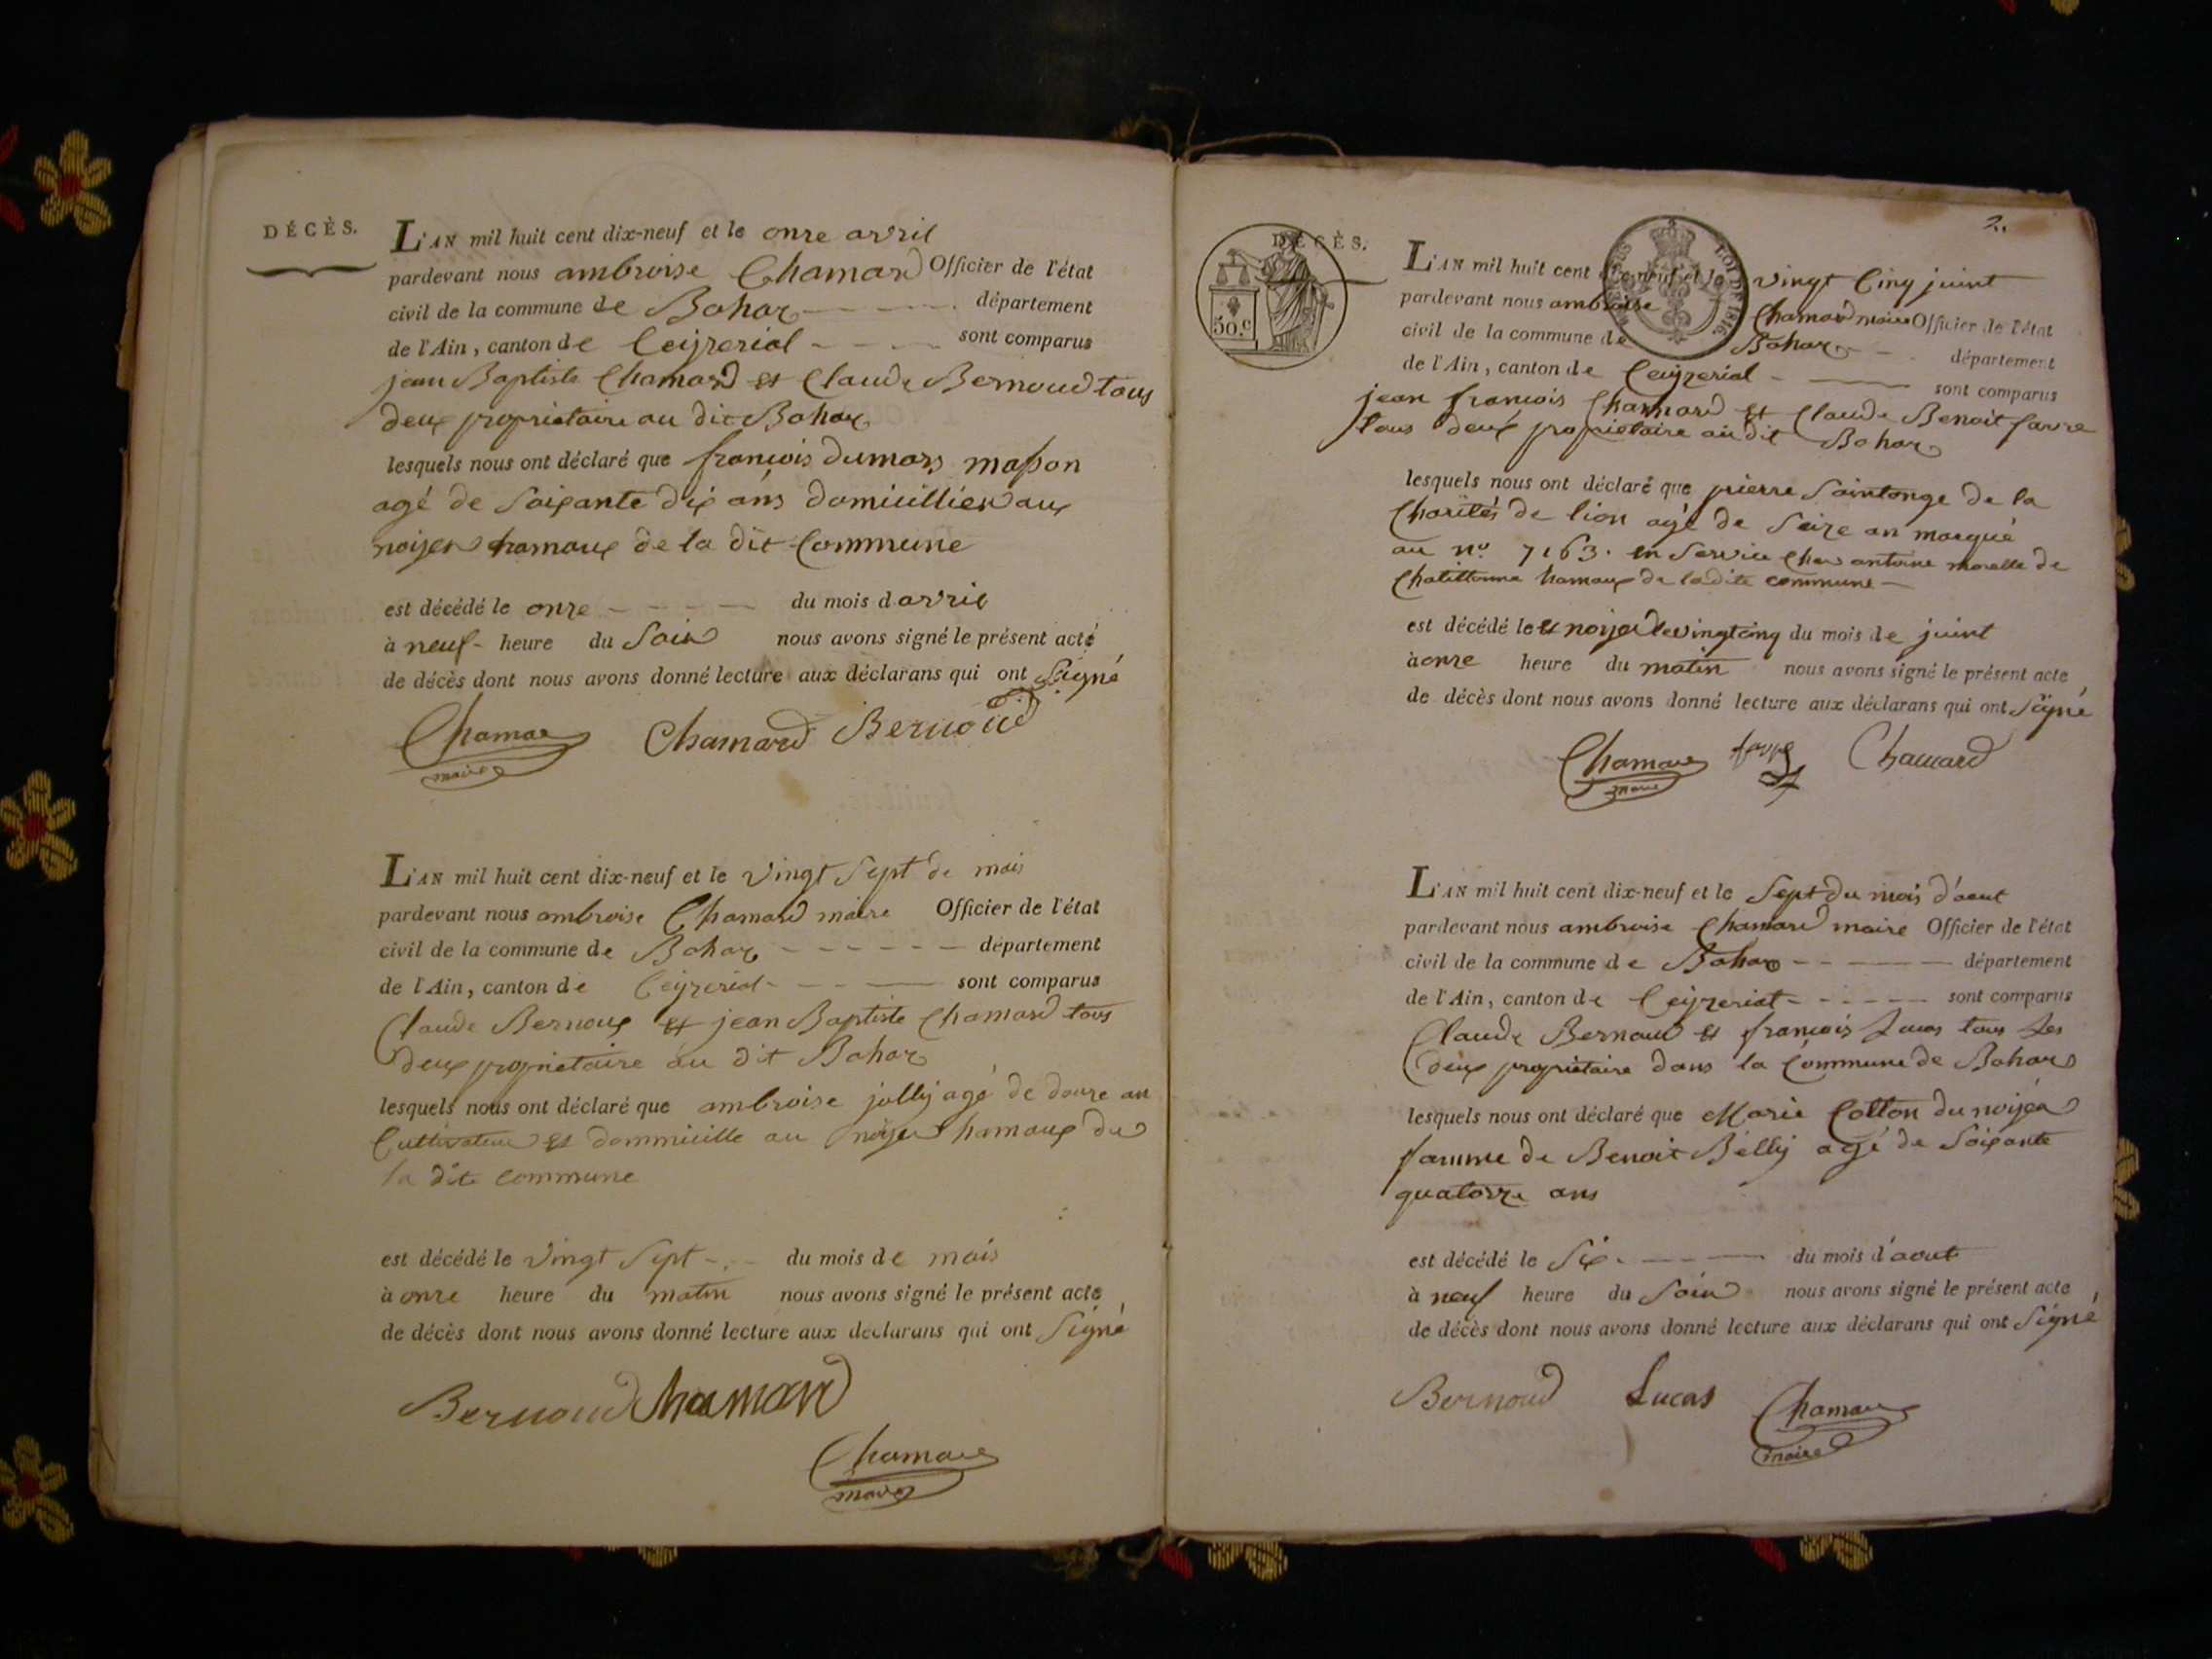 DÉCÈS.
L'AN mil huit cent dix-neuf et le onze avril
pardevant nous ambroise Chamard Officier de l'état
civil de la commune de Bohaz département
de l'Ain, canton de Ceijzeriat sont comparus
jean Baptiste Chamard et Claude Bernoud tous
deux propriétaire au dit Bohaz
lesquels nous ont déclaré que françois dumars masson
agé de Soixante dix ans domicillier aux
noijer hamaux de la dit Commune
est décédé le onze du mois d avril
à neuf heure du Soir nous avons signé le présent acte
de décès dont nous avons donné lecture aux déclarans qui ont Signé
Chamard Chamard Bernoud
maire
L'AN mil huit cent dix-neuf et le vingt Sept de mais
pardevant nous ambroise Chamard maire Officier de l'état
civil de la commune de Bohaz département
de l'Ain, canton de Ceijzeriat sont comparus
Claude Bernoux et jean Baptiste Chamard tous
deux propriétaire au dit Bohaz
lesquels nous ont déclaré que ambroise jollij agé de douze an
Cultivateur et dommicille au noijer hamaux du
la dite commune
est décédé le vingt Sept du mois de mais
à onze heure du matin nous avons signé le présent acte
de décès dont nous avons donné lecture aux déclarans qui ont Signé
Bernoud Chamard
Chamard
maire
2.
DÉCÈS.
50 c
ROI DE 1816.
L'AN mil huit cent dix-neuf et le vingt Cinq juint
pardevant nous ambroise Chamard maire Officier de l'état
civil de la commune de Bohaz département
de l'Ain, canton de Ceijzeriat sont comparus
jean françois Chamard et Claude Benoit favre
tous deux propriétaire au dit Bohaz
lesquels nous ont déclaré que pierre Saintonge de la
Charités de lion agé de Seize an marqué
au no. 7163. en Service Chez antoine morelle de
Chatillonne hamaux de ladite commune
est décédé le et noijer le vingt cinq du mois de juint
à onze heure du matin nous avons signé le présent acte
de décès dont nous avons donné lecture aux déclarans qui ont Signé
Chamard favre Chamard
maire
L'AN mil huit cent dix-neuf et le Sept du mois d'aout
pardevant nous ambroise Chamard maire Officier de l'état
civil de la commune de Bohaz département
de l'Ain, canton de Ceijzeriat sont comparus
Claude Bernoud et françois Lucas tous les
deux propriétaire dans la Commune de Bohaz
lesquels nous ont déclaré que Marie Cotton du noijer
famme de Benoit Billij agé de Soixante
quatorze ans
est décédé le Six du mois d'aout
à neuf heure du Soir nous avons signé le présent acte
de décès dont nous avons donné lecture aux déclarans qui ont Signé
Bernoud Lucas Chamard
maire